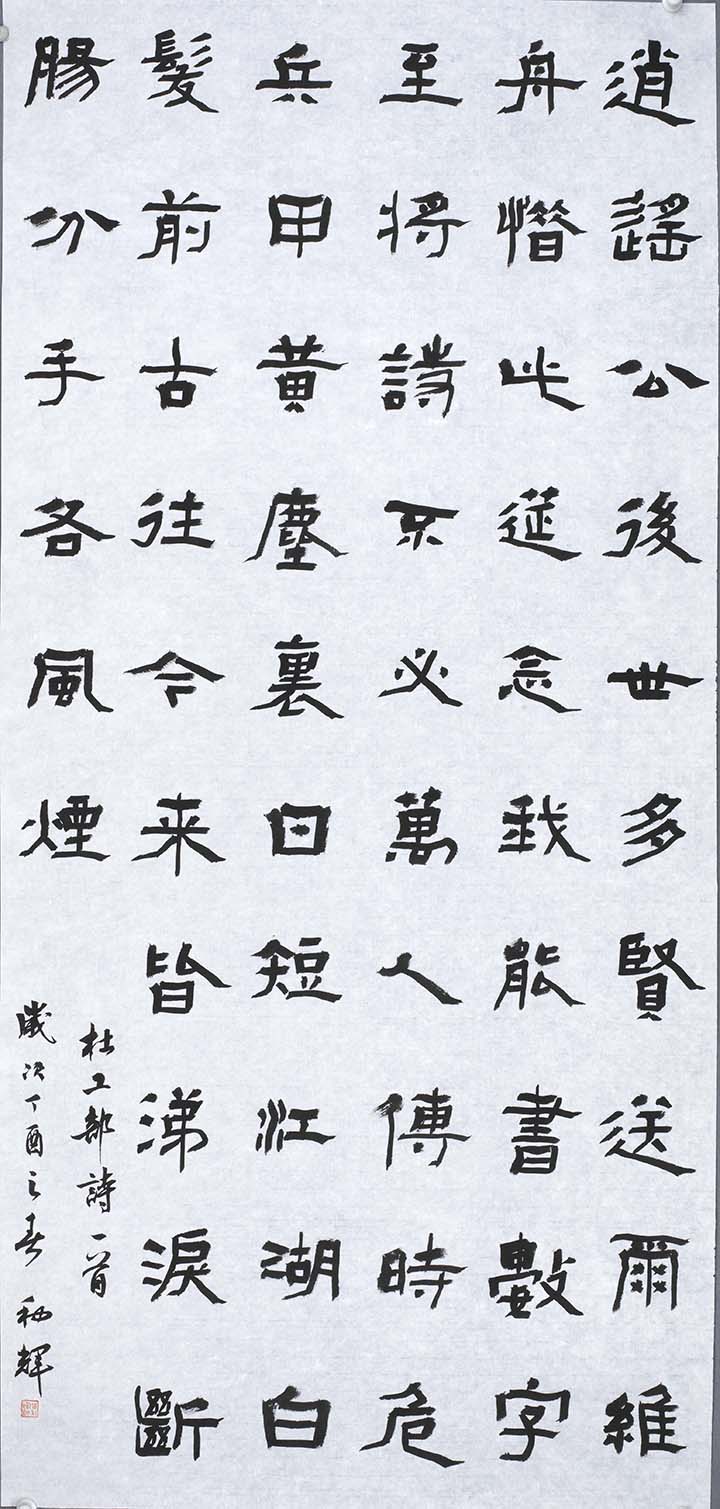 逍遙公後世多賢送爾維
舟惜此筵念我能書數字
至將詩不必萬人傳時危
兵甲黃塵裏日短江湖白
髮前古往今来皆涕淚斷
腸分手各風煙
杜工部詩一首
歲次丁酉之春 秋輝